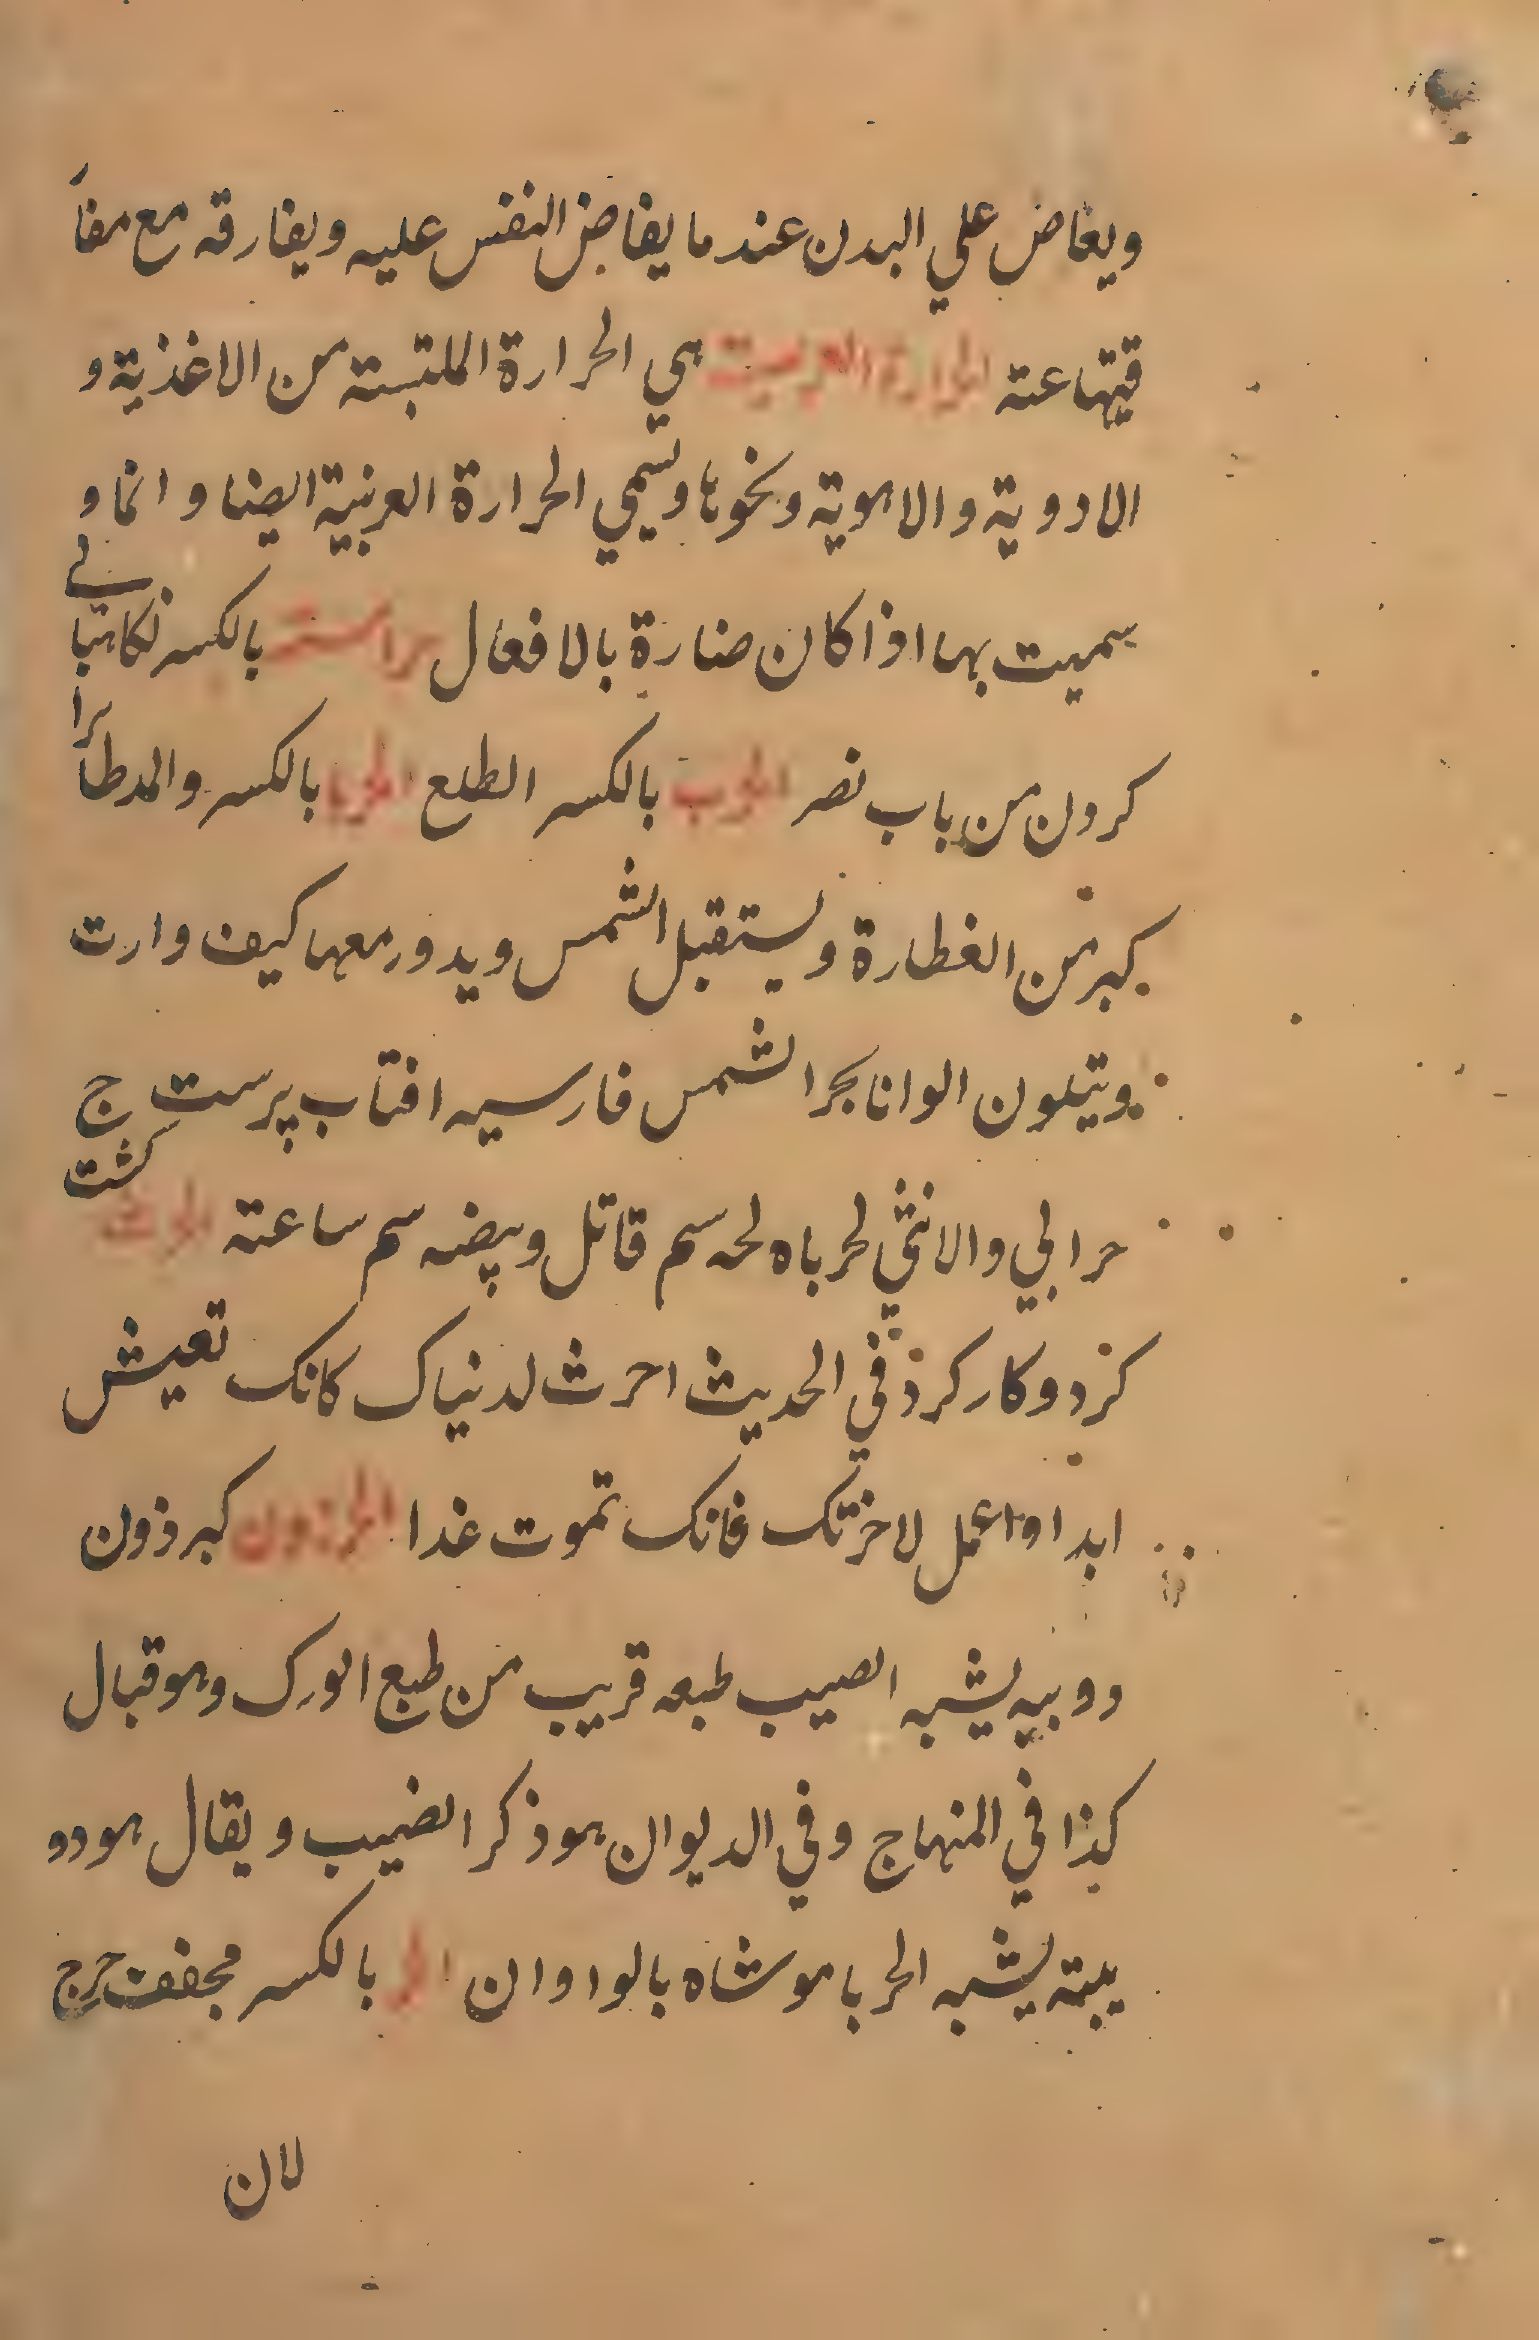 ويفاض علي البدن عند ما يفاض النفس عليه ويفارقه مع مفا
قتها عنه الحرارة الغريبة هي الحرارة الملتبسة من الاغذية و
الادوية والاهوية ونحوها وتسمي الحرارة الغريبة ايضا وانما و
سميت بها اذا كان ضارة بالافعال حراسة بالكسر نكاهباني
كردن من باب نصر الحرب بالكسر الطلع الحربا بالكسر والمد طائرا
كبر من الغطارة ويستقبل الشمس ويدور معها كيف دارت
ويتلون الوانا بحر الشمس فارسيه افتاب پرست ج
حرابي والانثي لحرباه لحمه سم قاتل وبيضه سم ساعته الحرث كشت
كرد وكار كرد في الحديث احرث لدنياك كانك تعيش
ابدا واعمل لاخرتك فانك تموت غدا الحرذون كبرذون
دويبه يشبه الضيب طبعه قريب من طبع الورك وهو قبال
كذا في المنهاج وفي الديوان هو ذكر الضيب ويقال هو دو
يبة يشبه الحربا موشاه بالوادان الحر بالكسر مخفف حرج
لان